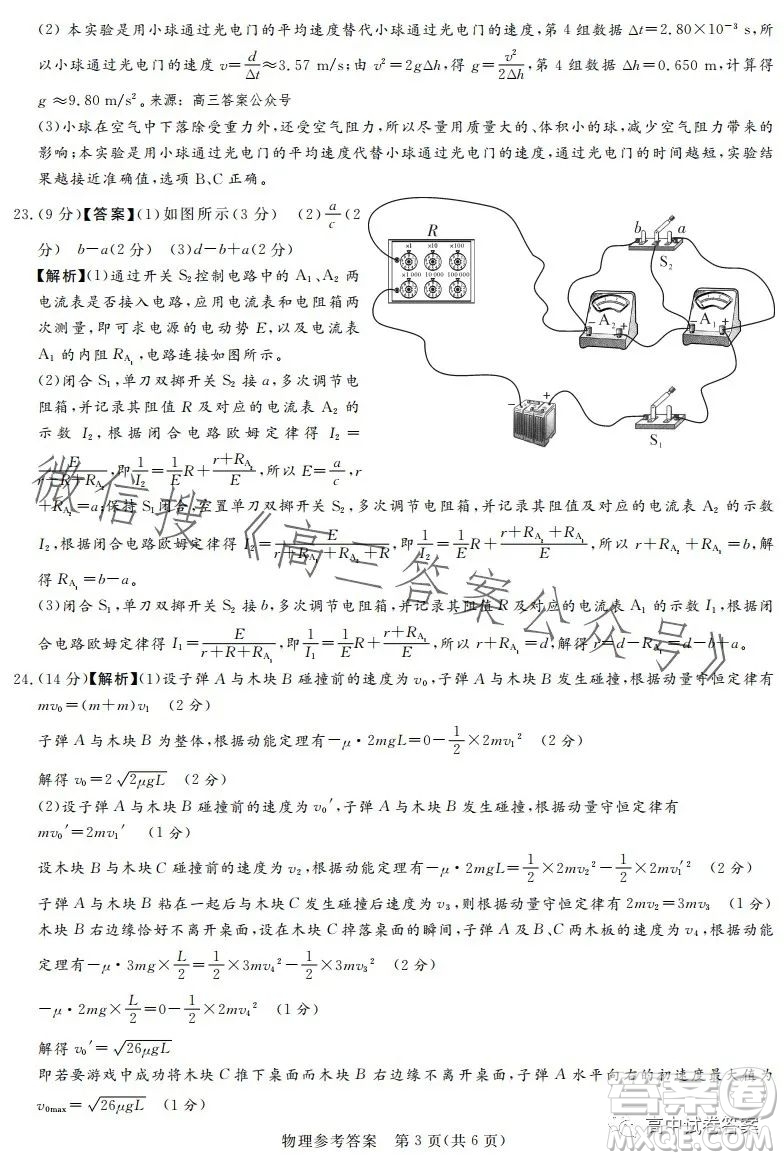 (2) 本实验是用小球通过光电门的平均速度替代小球通过光电门的速度,第 4 组数据 Δt=2.80×10⁻³ s,所
以小球通过光电门的速度 v=d/Δt≈3.57 m/s;由 v²=2gΔh,得 g=v²/2Δh,第 4 组数据 Δh=0.650 m,计算得
g≈9.80 m/s²。来源:高三答案公众号
(3)小球在空气中下落除受重力外,还受空气阻力,所以应用质量大的、体积小的球,减少空气阻力带来的
影响;本实验是用小球通过光电门的平均速度代替小球通过光电门的速度,通过光电门的时间越短,实验结
果越接近准确值,选项 B、C 正确。
23.(9 分)【答案】(1)如图所示(3 分) (2)a/c(2
分) b-a(2 分) (3)d-b+a(2 分)
【解析】(1)通过开关 S₂控制电路中的 A₁、A₂ 两
电流表是否接入电路,应用电流表和电阻箱两
次测量,即可求电源的电动势 E,以及电流表
A₁ 的内阻 R_A₁,电路连接如图所示。
(2)闭合 S₁,单刀双掷开关 S₂ 接 a,多次调节电
阻箱,并记录其阻值 R 及对应的电流表 A₂ 的
示数 I₂,根据闭合电路欧姆定律得 I₂=
E/(r+R+R_A₂),即1/I₂=1/E R+(r+R_A₂)/E,所以 E=a/c,r
+R_A₂=a;保持 S₁闭合,左置单刀双掷开关 S₂,多次调节电阻箱,并记录其阻值及对应的电流表 A₂ 的示数
I₂,根据闭合电路欧姆定律得 I₂=E/(r+R_A₂+R_A₁+R),即1/I₂=1/E R+(r+R_A₂+R_A₁)/E,所以 r+R_A₂+R_A₁=b,解
得 R_A₁=b-a。
(3)闭合 S₁,单刀双掷开关 S₂ 接 b,多次调节电阻箱,并记录其阻值 R 及对应的电流表 A₁ 的示数 I₁,根据闭
合电路欧姆定律得 I₁=E/(r+R+R_A₁),即1/I₁=1/E R+(r+R_A₁)/E,所以 r+R_A₁=d,解得 r=d-R_A₁=d-b+a。
24.(14 分)【解析】(1)设子弹 A 与木块 B 碰撞前的速度为 v₀,子弹 A 与木块 B 发生碰撞,根据动量守恒定律有
mv₀=(m+m)v₁ (2 分)
子弹 A 与木块 B 为整体,根据动能定理有-μ·2mgL=0-1/2×2mv₁² (2 分)
解得 v₀=2√(2μgL) (2 分)
(2)设子弹 A 与木块 B 碰撞前的速度为 v₀′,子弹 A 与木块 B 发生碰撞,根据动量守恒定律有
mv₀′=2mv₁′ (1 分)
设木块 B 与木块 C 碰撞前的速度为 v₂,根据动能定理有-μ·2mgL=1/2×2mv₂²-1/2×2mv₁′² (2 分)
子弹 A 与木块 B 粘在一起后与木块 C 发生碰撞后速度为 v₃,则根据动量守恒定律有 2mv₂=3mv₃ (1 分)
木块 B 右边缘恰好不离开桌面,设在木块 C 掉落桌面的瞬间,子弹 A 及B、C 两木板的速度为 v₄,根据动能
定理有-μ·3mg×L/2=1/2×3mv₄²-1/2×3mv₃² (2 分)
-μ·2mg×L/2=0-1/2×2mv₄² (1 分)
解得 v₀′=√(26μgL)
即若要游戏中成功将木块 C 推下桌面而木块 B 右边缘不离开桌面,子弹 A 水平向右的初速度最大值为
v₀ₘₐₓ=√(26μgL) (1 分)
物理参考答案 第 3 页(共 6 页)
R
×1 ×10 ×100
×1 000 10 000 ×100 000
b a
S₂
- A₂ +
- A₁ +
- +
S₁
微信搜《高三答案公众号》
高中试卷答案
作业帮
MXQE.COM